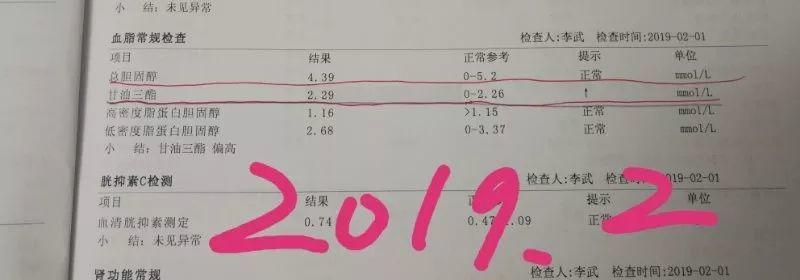 小 结：未见异常
血脂常规检查 检查人：李武 检查时间：2019-02-01
项目 结果 正常参考 提示 单位
总胆固醇 4.39 0-5.2 正常 mmol/L
甘油三酯 2.29 0-2.26 ↑ mmol/L
高密度脂蛋白胆固醇 1.16 >1.15 正常 mmol/L
低密度脂蛋白胆固醇 2.68 0-3.37 正常 mmol/L
小 结：甘油三酯 偏高
胱抑素C检测 检查人：李武 检查时间：2019-02-01
项目 结果 提示 单位
血清胱抑素测定 0.74 0.47 .09 正常
小 结：未见异常
2019.2
肾功能常规 检查人：李武 检查时间：2019-02-01